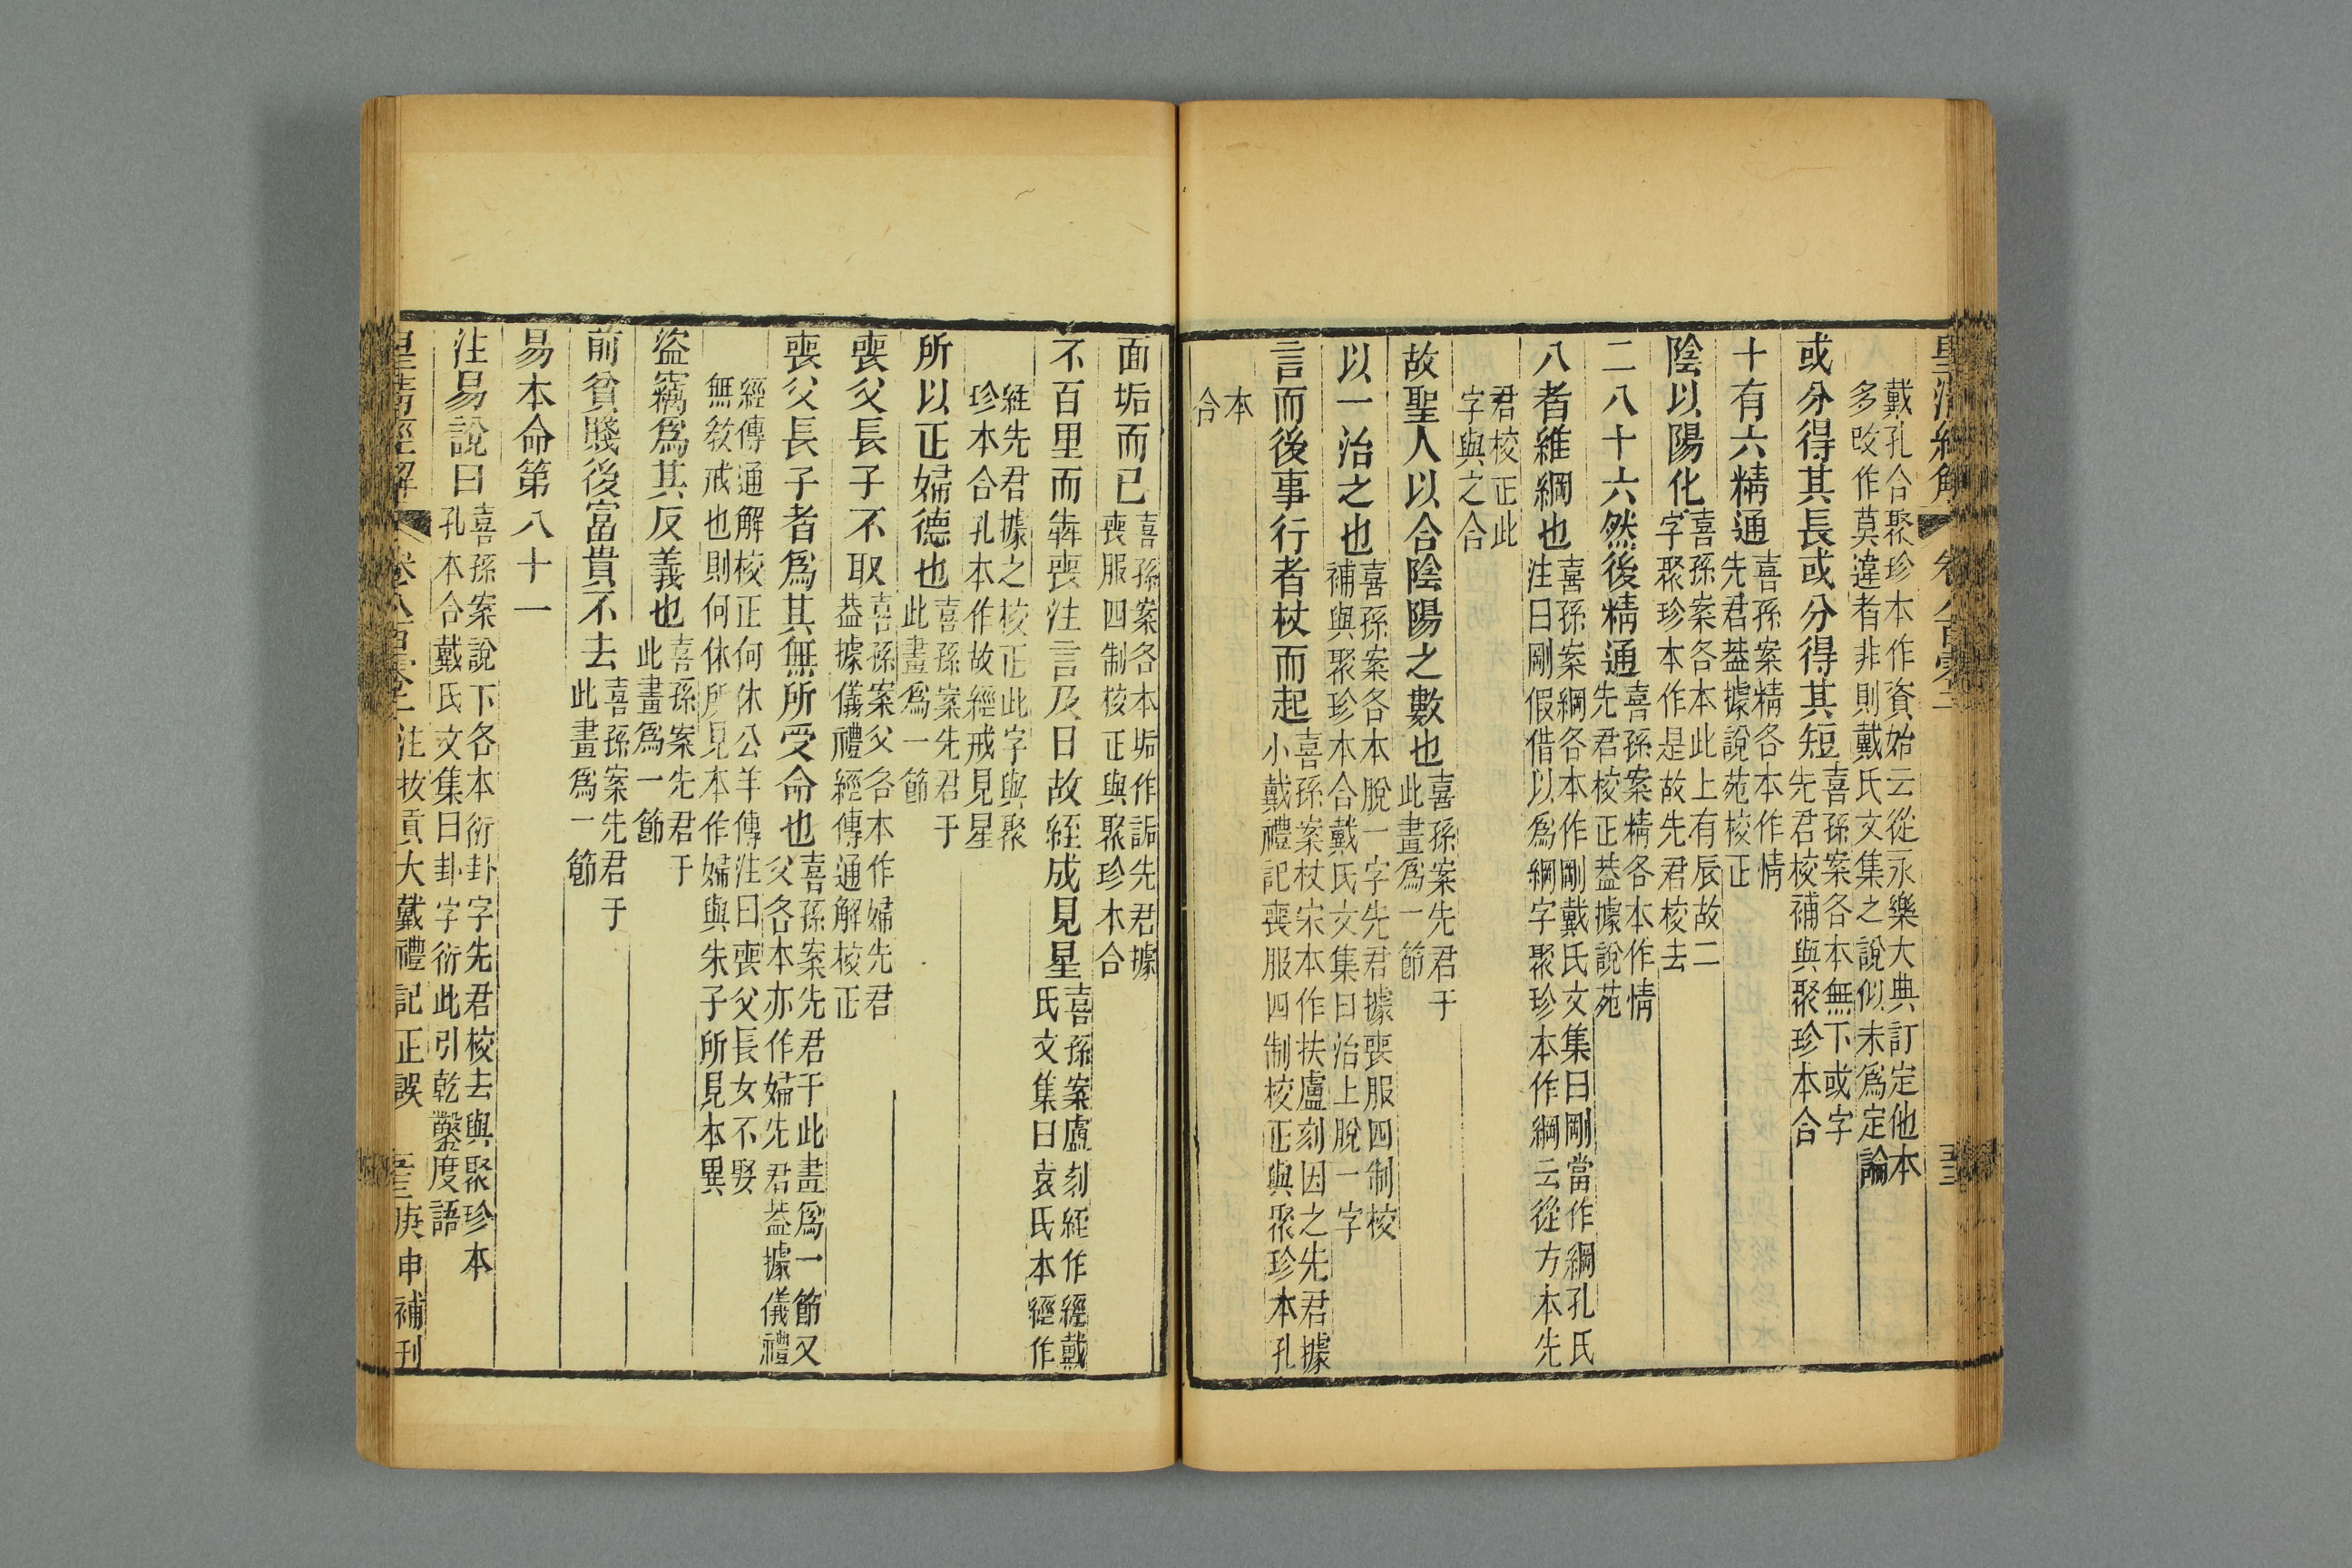 戴孔合聚珍本作資始云從永樂大典訂定他本
多攺作莫違者非則戴氏文集之說似未爲定論
或分得其長或分得其短喜孫案各本無下或字
先君校補與聚珍本合
十有六精通喜孫案精各本作情
先君葢據說苑校正
陰以陽化喜孫案各本此上有辰故二
字聚珍本作是故先君校去
二八十六然後精通喜孫案精各本作情
先君校正葢據說苑
八者維綱也喜孫案綱各本作剛戴氏文集曰剛當作綱孔氏
注曰剛假借以爲綱字聚珍本作綱云從方本先
君校正此
字與之合
故聖人以合陰陽之數也喜孫案先君于
此畫爲一節
以一治之也喜孫案各本脫一字先君據喪服四制校
補與聚珍本合戴氏文集曰治上脫一字
言而後事行者杖而起喜孫案杖宋本作扶盧刻因之先君據
小戴禮記喪服四制校正與聚珍本孔
本
合
面垢而已喜孫案各本垢作詬先君據
喪服四制校正與聚珍本合
不百里而犇喪注言及日故絰成見星喜孫案盧刻絰作經戴
氏文集曰袁氏本經作
絰先君據之校正此字與聚
珍本合孔本作故經戒見星
所以正婦德也喜孫案先君于
此畫爲一節
喪父長子不取喜孫案父各本作婦先君
葢據儀禮經傳通解校正
喪父長子者爲其無所受命也喜孫案先君于此畫爲一節又
父各本亦作婦先君葢據儀禮
經傳通解校正何休公羊傳注曰喪父長女不娶
無敎戒也則何休所見本作婦與朱子所見本異
盜竊爲其反義也喜孫案先君于
此畫爲一節
前貧賤後富貴不去喜孫案先君于
此畫爲一節
易本命第八十一
注易說曰喜孫案說下各本衍卦字先君校去與聚珍本
孔本合戴氏文集曰卦字衍此引乾鑿度語
皇淸經解 卷八百零二 汪拔貢大戴禮記正誤 庚申補刊